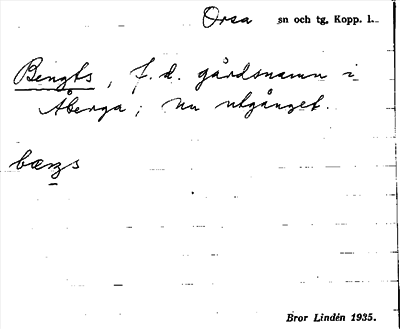 Orsa sn och tg. Kopp. l.
Bengts, f. d. gårdsnamn i
Åberga; nu utgånget.
Bror Lindén 1935.